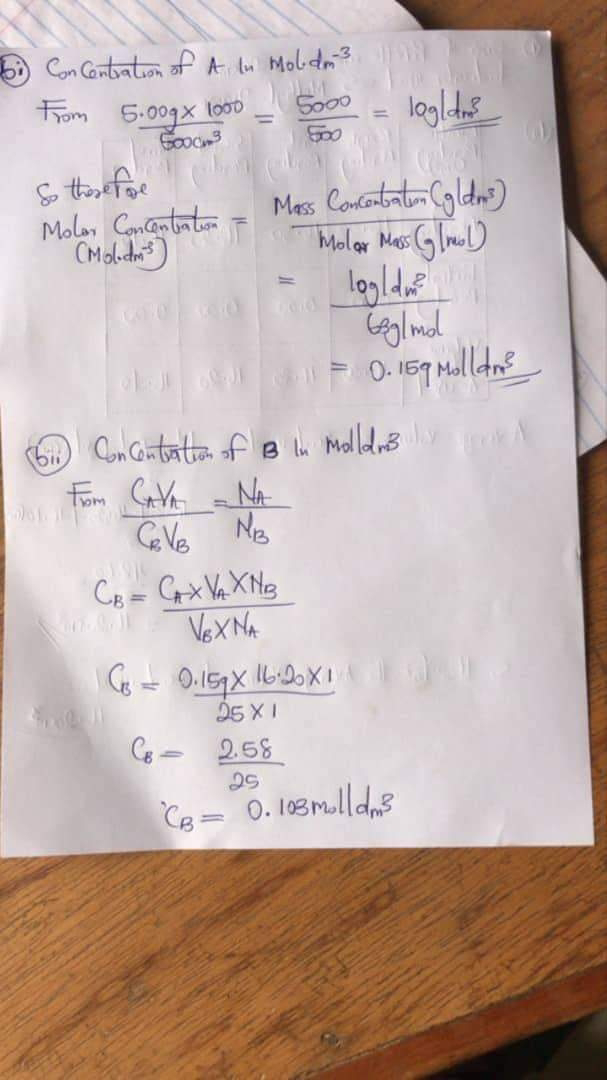 bi) Concentration of A in Mol·dm⁻³
From 5.00g × 1000 / 500cm³ = 5000 / 500 = 10g/dm³
So therefore
Molar Concentration (Mol·dm⁻³) = Mass Concentration (g/dm³) / Molar Mass (g/mol)
= 10g/dm³ / 63g/mol
= 0.159 Mol/dm³
bii) Concentration of B in mol/dm³
From CAVA / CBVB = NA / NB
CB = CA × VA × NB / VB × NA
CB = 0.159 × 16.20 × 1 / 25 × 1
CB = 2.58 / 25
CB = 0.103 mol/dm³